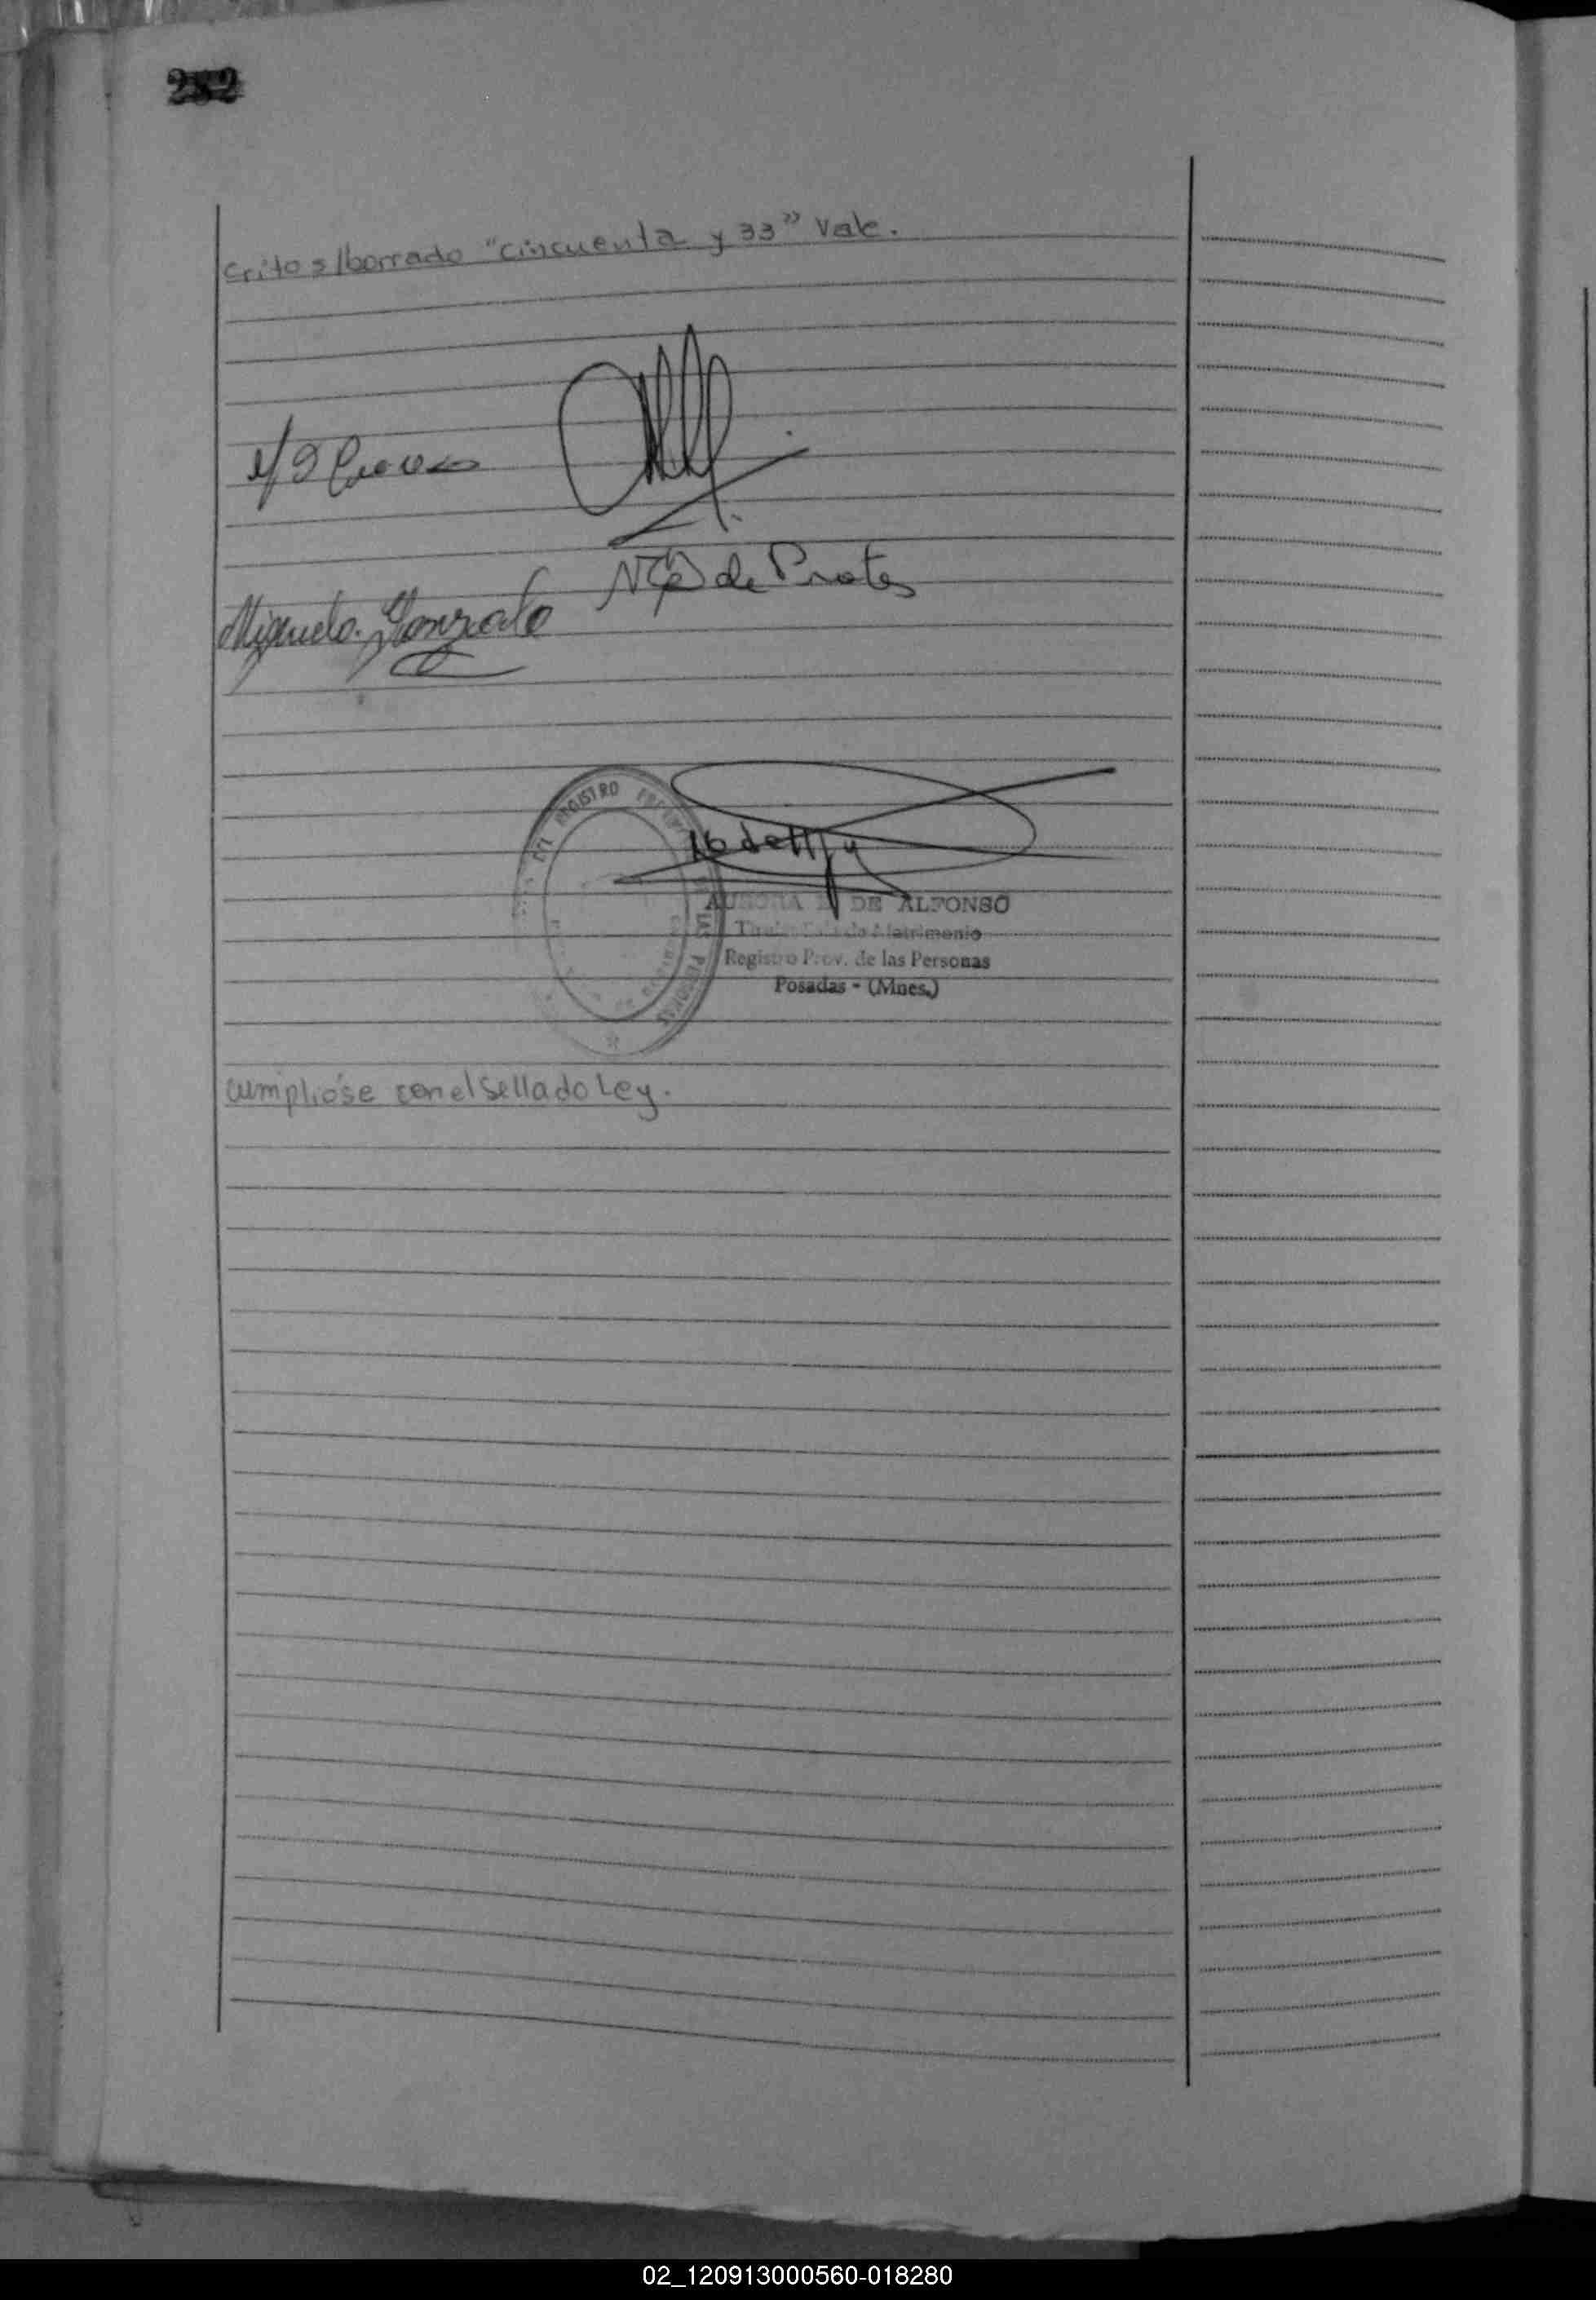 282
crito s/borrado "cincuenta y 33" Vale.
N de Prates
Miguela. Gonzalo
REGISTRO
LAS PERSONAS
AURORA DE ALFONSO
Matrimonio
Registro Prov. de las Personas
Posadas - (Mnes.)
cumplióse con el sellado Ley.
02_120913000560-018280